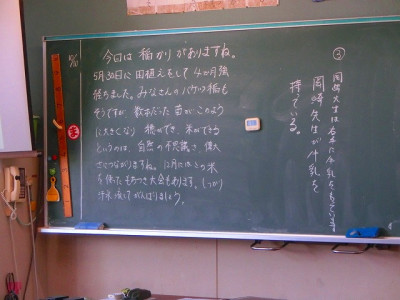 今日は 稲かり がありますね。
5月30日に 田植えをして 4か月強
経ちました。みなさんの バケツ稲も
そうですが 数本だった 苗が このよう
に大きくなり 穂ができ、米ができる
というのは、自然の不思議さ 偉大
さにつながりますね。12月にはこの米
を使った もちつき大会もあります。しっかり
汗水流してがんばりましょう。
②
岡崎大生は右手に牛乳をもっています
岡崎先生が牛乳を
持っている。